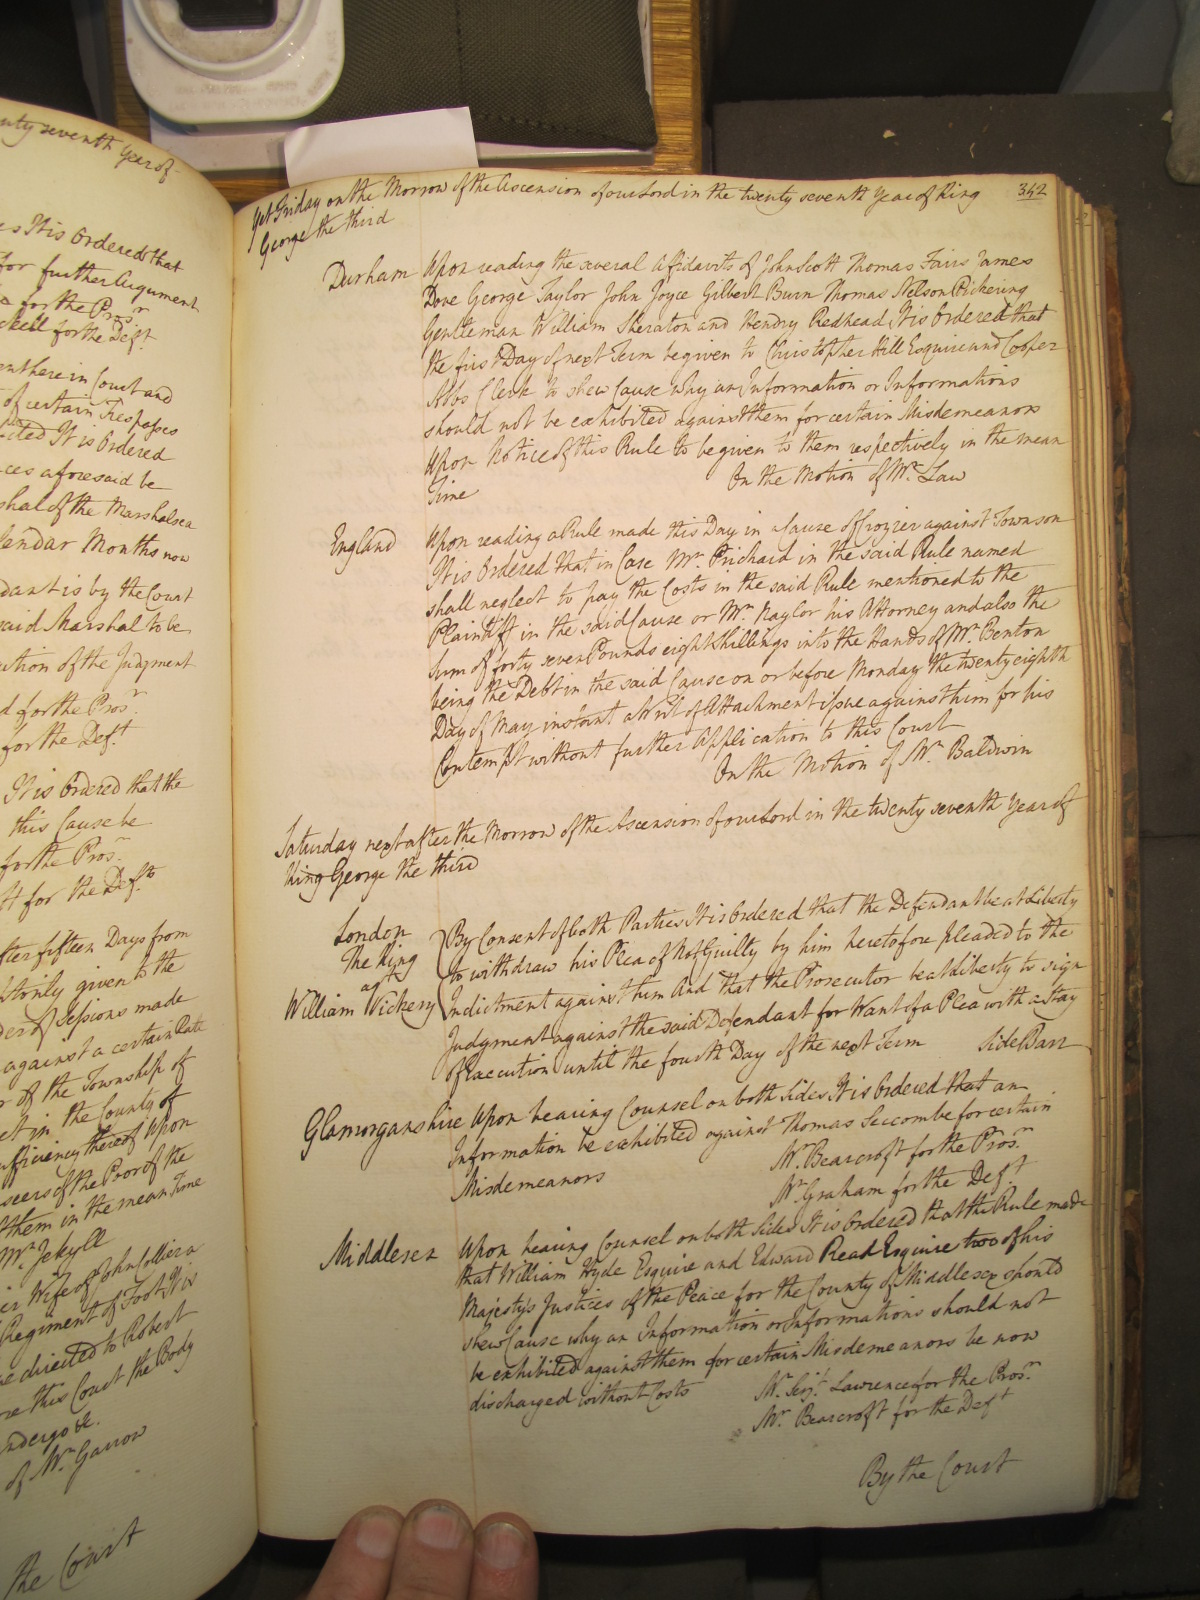 nty seventh Year of
s It is Ordered that
for further Argument
for the Pros.r
ckell for the Def.t
en there in Court and
of certain Trespasses
cted It is Ordered
ces aforesaid be
shal of the Marshalsea
lendar Months now
dant is by the Court
said Marshal to be
ution of the Judgment
d for the Pros.r
for the Def.t
It is Ordered that the
this Cause be
for the Pros.r
tt for the Def.t
fter fifteen Days from
given to the
der of Sessions made
against a certain Rate
r of the Township of
et in the County of
ufficiency thereof Upon
seers of the Poor of the
them in the mean Time
Mr. Jekyll
er Wife of John Collier a
Regiment of Foot His
e directed to Robert
re this Court the Body
ndergo &c.
of Mr. Garrow
the Court
Yet Friday on the Morrow of the Ascension of our Lord in the twenty seventh Year of King 342
George the third
Durham Upon reading the several Affidavits of John Scott Thomas Fairs James
Dove George Taylor John Joyce Gilbert Burn Thomas Nelson Pickering
Gentleman William Sheraton and Hendry Redhead It is Ordered that
the first Day of next Term be given to Christopher Hill Esquire and Cooper
Abbs Clerk to shew Cause why an Information or Informations
should not be exhibited against them for certain Misdemeanors
Upon Notice of this Rule to be given to them respectively in the mean
Time On the Motion of Mr. Law
England Upon reading a Rule made this Day in a Cause of Crozier against Townson
It is Ordered that in Case Mr. Prichard in the said Rule named
shall neglect to pay the Costs in the said Rule mentioned to the
Plaintiff in the said Cause or Mr. Naylor his Attorney and also the
Sum of forty seven Pounds eight Shillings into the Hands of Mr. Benton
being the Debt in the said Cause on or before Monday the twenty eighth
Day of May instant a Writ of Attachment issue against him for his
Contempt without further Application to this Court
On the Motion of Mr. Baldwin
Saturday next after the Morrow of the Ascension of our Lord in the twenty seventh Year of
King George the third
London
The King
agt
William Vickery
By Consent of both Parties It is Ordered that the Defendant be at Liberty
to withdraw his Plea of Not Guilty by him heretofore pleaded to the
Indictment against him And that the Prosecutor be at liberty to sign
Judgment against the said Defendant for Want of a Plea with a Stay
of Execution until the fourth Day of the next Term Side Barr
Glamorganshire Upon hearing Counsel on both Sides It is Ordered that an
Information be exhibited against Thomas Seccombe for certain
Misdemeanors Mr. Bearcroft for the Pros.r
Mr. Graham for the Def.t
Middlesex Upon hearing Counsel on both Sides It is Ordered that the Rule made
that William Hyde Esquire and Edward Read Esquire two of his
Majesty's Justices of the Peace for the County of Middlesex should
shew Cause why an Information or Informations should not
be exhibited against them for certain Misdemeanors be now
discharged without Costs Mr. Serj.t Lawrence for the Pros.r
Mr. Bearcroft for the Def.t
By the Court